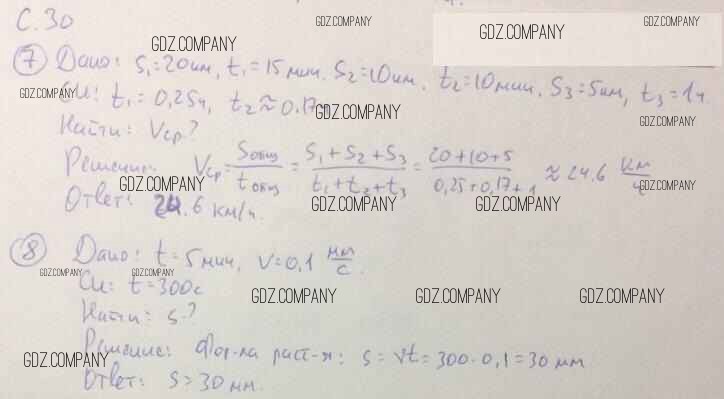 С. 30
GDZ.COMPANY GDZ.COMPANY
GDZ.COMPANY GDZ.COMPANY
7 Дано: S₁=20км, t₁=15 мин. S₂=10км. t₂=10мин. S₃=5км, t₃=1ч.
GDZ.COMPANY
Си: t₁=0,25ч, t₂≈0.17ч
GDZ.COMPANY GDZ.COMPANY
Найти: Vср?
Решение: Vср = Sобщ/tобщ = S₁+S₂+S₃/t₁+t₂+t₃ = 20+10+5/0,25+0,17+1 ≈ 24.6 км/ч
GDZ.COMPANY GDZ.COMPANY
Ответ: 24.6 км/ч.
GDZ.COMPANY GDZ.COMPANY
8 Дано: t=5мин, v=0,1 мм/с.
GDZ.COMPANY GDZ.COMPANY
Си: t=300с
GDZ.COMPANY GDZ.COMPANY GDZ.COMPANY
Найти: s?
Решение: Фор-ла расст-я: s=vt=300·0,1=30 мм
GDZ.COMPANY
Ответ: s=30 мм.